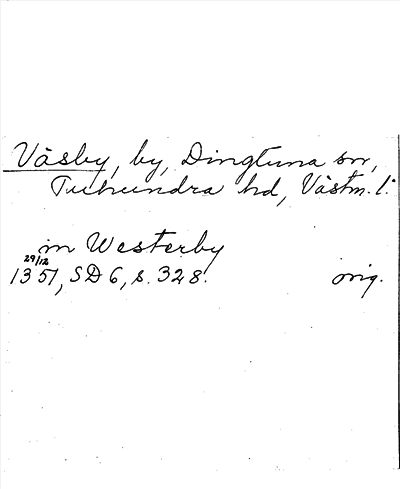 Väsby, by, Dingtuna sn,
Tuhundra hd, Västm. l.
in Westerby
29/12
1351, SD 6, s. 328. orig.